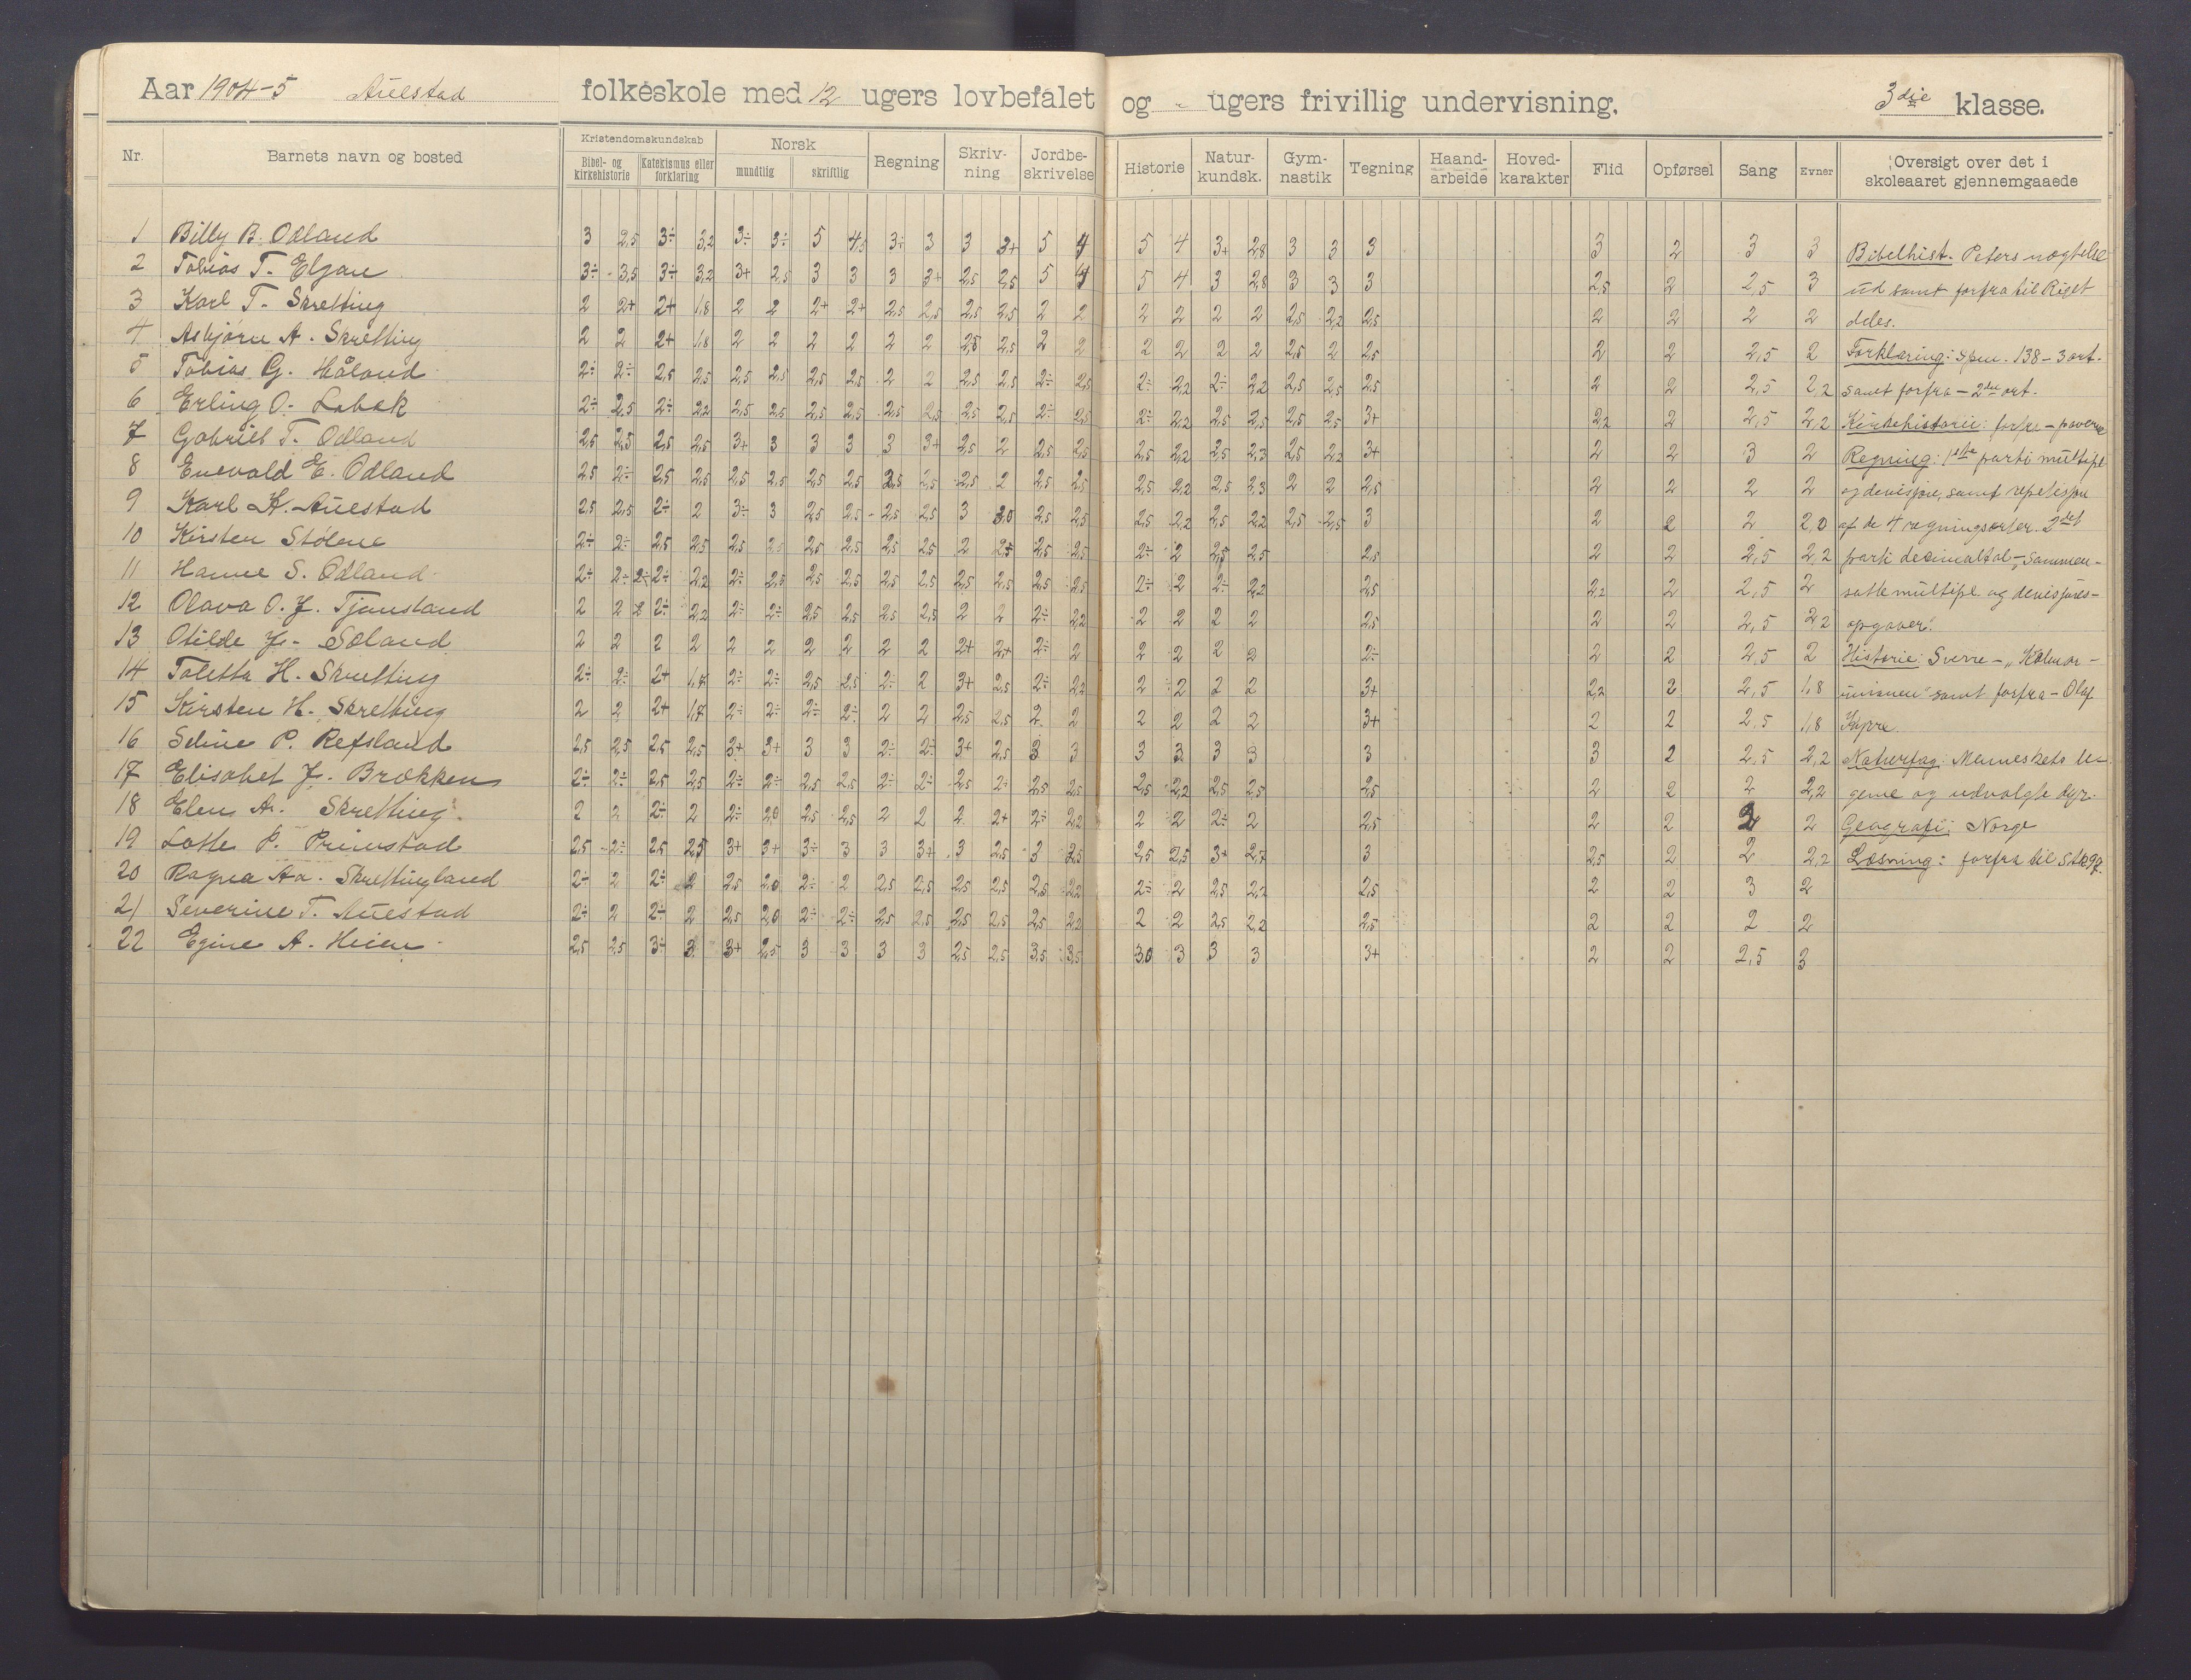 Aar 1904-5 Auestad folkeskole med 12 ugers lovbefalet og - ugers frivillig undervisning. 3die klasse.
Nr. Barnets navn og bosted Kristendomskundskab Bibel- og kirkehistorie Katekismus eller forklaring Norsk mundtlig skriftlig Regning Skrivning Jordbeskrivelse Historie Naturkundsk. Gymnastik Tegning Haandarbeide Hovedkarakter Flid Opførsel Sang Evner Oversigt over det i skoleaaret gjennemgaaede
1 Billy B. Odland 3 2,5 3÷ 3,2 3÷ 3÷ 5 4,5 3÷ 3 3 3+ 5 4 5 4 3+ 2,8 3 3 3 3 2 3 3
2 Tobias T. Elgan 3÷ 3,5 3÷ 3,2 3+ 2,5 3 3 3 3+ 2,5 2,5 5 4 5 4 3 2,8 3 3 3 2,5 2 2,5 3
3 Karl T. Skretting 2 2+ 2+ 1,8 2 2 2+ 2+ 2,5 2,5 2,5 2,5 2 2 2 2 2 2 2,5 2,2 2,5 2 2 2 2
4 Asbjørn A. Skretting 2 2 2+ 1,8 2 2 2 2 2 2 2,5 2,5 2 2 2 2 2 2 2,5 2 2,5 2 2 2,5 2
5 Tobias G. Håland 2÷ 2÷ 2,5 2,5 2,5 2,5 2,5 2,5 2 2 2,5 2,5 2÷ 2,5 2÷ 2,2 2÷ 2,2 2,5 2,5 2,5 2 2 2,5 2,2
6 Erling O. Lobek 2÷ 2,5 2÷ 2,2 2,5 2,5 2,5 2,5 2,5 2,5 2,5 2,5 2÷ 2,5 2÷ 2,2 2,5 2,5 2,5 2,5 3+ 2,2 2 2,5 2,2
7 Gabriel T. Odland 2,5 2,5 2,5 2,5 3+ 3 3 3 3 3+ 2,5 2 2,5 2,5 2,5 2,2 2,5 2,3 2,5 2,2 3+ 2 2 3 2
8 Enevald E. Odland 2,5 2÷ 2,5 2,5 2,5 2,5 2,5 2,5 2,5 2,5 2,5 2 2,5 2,5 2,5 2,2 2,5 2,3 2 2 2,5 2 2 2 2
9 Karl K. Auestad 2,5 2,5 2÷ 2 3÷ 3 2,5 2,5 2,5 2,5 3 3,0 2,5 2,5 2,5 2,2 2,5 2,2 2,5 2,5 3 2 2 2 2,0
10 Kirsten Stølene 2÷ 2÷ 2,5 2,5 2,5 2,5 2,5 2,5 2,5 2,5 2 2,5 2,5 2,5 2÷ 2 2,5 2,5 2,5 2 2 2,5 2,2
11 Hanne S. Odland 2÷ 2÷ 2÷ 2,2 2÷ 2,5 2,5 2,5 2,5 2,5 2,5 2,5 2,5 2,5 2÷ 2 2÷ 2,2 2,5 2,2 2 2,5 2
12 Olava O. J. Tjensland 2 2 2÷ 2,2 2÷ 2÷ 2,5 2,5 2,5 2,5 2 2 2÷ 2,2 2 2 2 2 2,5 2 2 2,5 2,2
13 Otilde J. Soland 2 2 2 2 2 2 2 2 2 2 2+ 2+ 2÷ 2 2 2 2 2 2÷ 2 2 2,5 2
14 Toletta H. Skretting 2÷ 2÷ 2+ 1,7 2÷ 2÷ 2,5 2,5 2÷ 2 3+ 2,5 2÷ 2,2 2 2 2 2 3+ 2,2 2 2,5 1,8
15 Kirsten H. Skretting 2 2 2+ 1,7 2÷ 2÷ 2÷ 2÷ 2 2 2,5 2,5 2 2 2 2 2 2 3+ 2 2 2,5 1,8
16 Seline P. Refsland 2,5 2,5 2,5 2,5 3+ 3+ 3 3 2÷ 2÷ 3+ 2,5 3 3 3 3 3 3 3 3 2 2,5 2,2
17 Elisabet J. Brækken 2÷ 2÷ 2,5 2,5 2÷ 2÷ 2,5 2,5 2÷ 2÷ 2,5 2÷ 2,5 2,5 2,5 2,2 2,5 2,5 2,5 2 2 2 2,2
18 Elen A. Skretting 2 2 2÷ 2 2÷ 2,0 2,5 2,5 2 2 2 2+ 2÷ 2,2 2 2 2÷ 2 2,5 2 2 2 2
19 Lotte P. Primstad 2,5 2÷ 2,5 2,5 3+ 3+ 3÷ 3 3 3+ 3 2,5 3 2,5 2,5 2,5 3+ 2,7 3 2,5 2 2 2,2
20 Ragna Aa. Skrettingland 2÷ 2 2÷ 2 2,5 2,0 2÷ 2 2,5 2,5 2,5 2,5 2,5 2,2 2÷ 2 2,5 2,2 2,5 2 2 3 2
21 Severine T. Auestad 2÷ 2 2÷ 2 2,5 2,0 2÷ 2÷ 2,5 2,5 2,5 2,5 2,5 2,2 2 2 2,5 2,2 2,5 2 2 2 2
22 Egine A. Heien 2,5 2,5 3÷ 3 3+ 2,5 3 3 3 3 2,5 2,5 3,5 3,5 3,0 3 3 3 3+ 2 2 2,5 3
Bibelhist. Peters nægtelse
ud samt forfra til Riget
deles.
Forklaring: Spm. 138 - 3 art.
samt forfra - 2den art.
Kirkehistorie: forfra - paverne
Regning: 1ste parti multipl
og devisjon, samt repetisjon
af de 4 regningsarter. 2det
parti decimaltal - Sammen-
satte multipl. og devisjons-
opgaver.
Historie: Sverre - "Kalmar-
unionen" samt forfra - Olaf
Kyrre
Naturfag: Menneskets le-
geme og udvalgte dyr.
Geografi: Norge
Læsning: forfra til St.